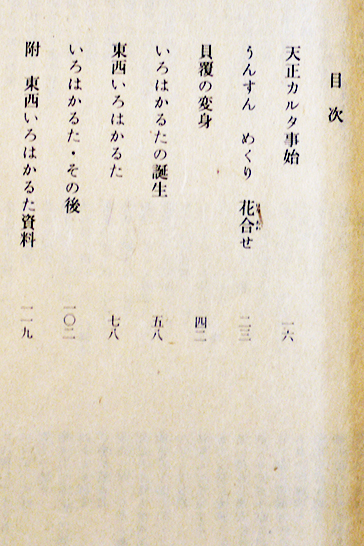 目次
天正カルタ事始 一六
うんすん めくり 花合せ 二三
貝覆の変身 四二
いろはかるたの誕生 五八
東西いろはかるた 七八
いろはかるた・その後 一〇二
附 東西いろはかるた資料 一一九